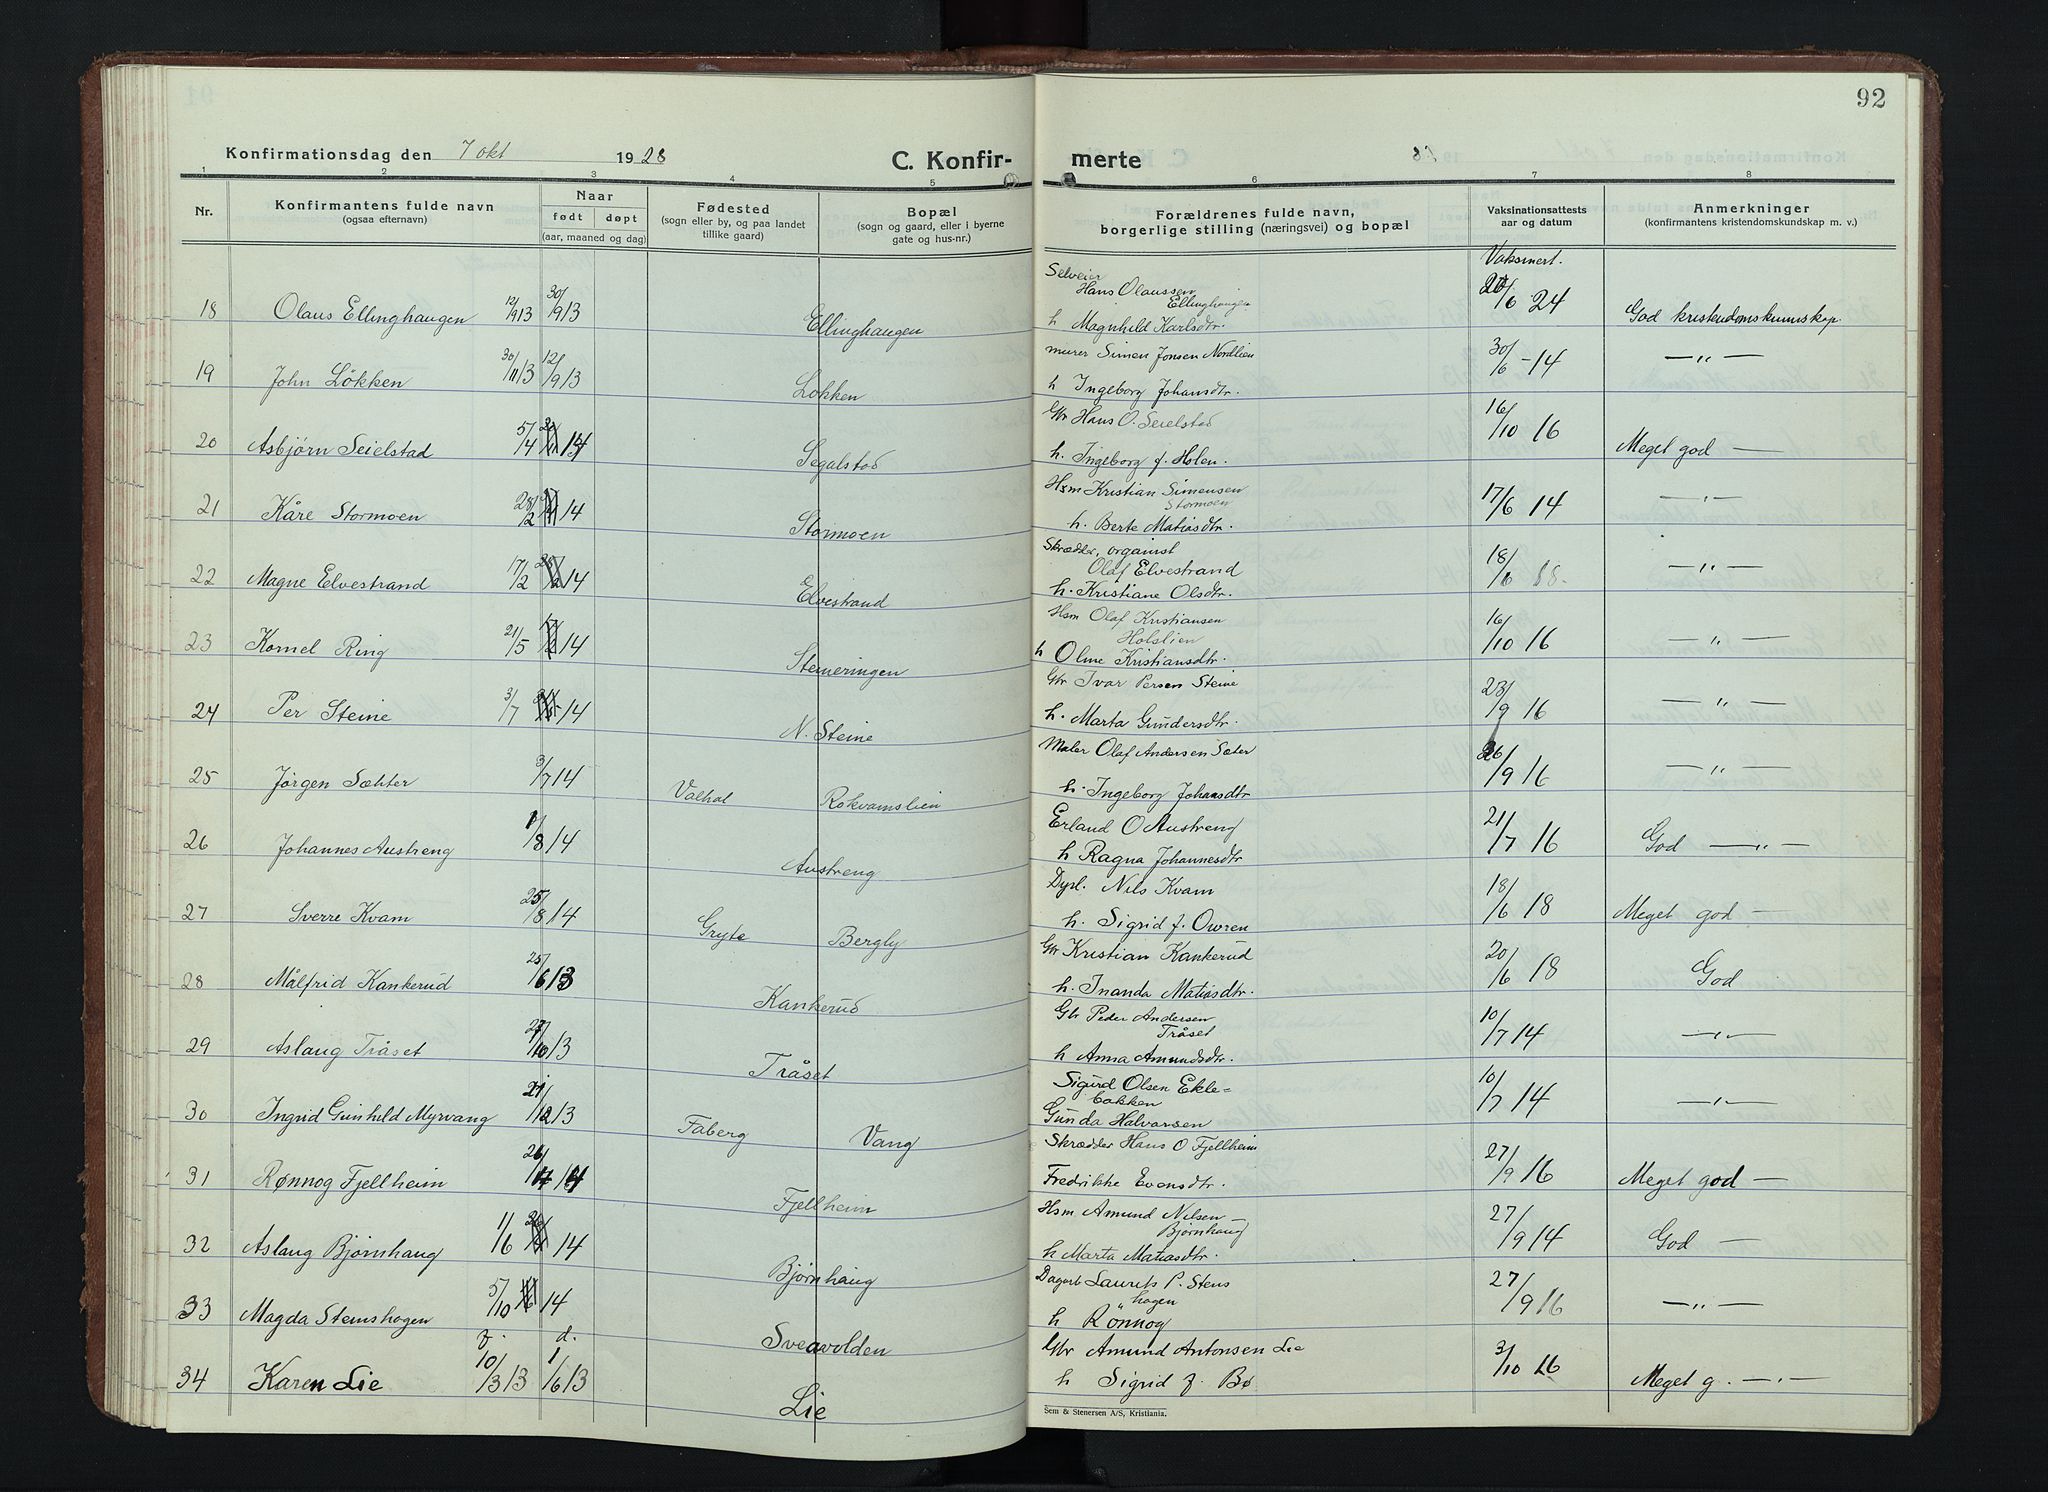 92
Konfirmationsdag den 7 okt 1928
C. Konfir-
merte
19
1 2 3 4 5 6 7 8
Nr.
Konfirmantens fulde navn
(ogsaa efternavn)
Naar
født døpt
(aar, maaned og dag)
Fødested
(sogn eller by, og paa landet
tillike gaard)
Bopæl
(sogn og gaard, eller i byerne
gate og hus-nr.)
Forældrenes fulde navn,
borgerlige stilling (næringsvei) og bopæl
Vaksinationsattests
aar og datum
Anmerkninger
(konfirmantens kristendomskundskap m. v.)
Vaksinert.
18 Olaus Ellinghaugen 12/9 13 30/9 13 Ellinghaugen
Selveier
Hans Olaussen
Ellinghaugen
h Magnhild Karlsdtr.
/6 24 God kristendomskunnskap.
19 John Løkken 30/11 13 12/9 13 Løkken
murer Simen Jonsen Nordlien
h Ingeborg Johansdtr.
30/6 - 14 — " —
20 Asbjørn Seielstad 5/4 14 Segalstad
Gbr Hans O. Seielstad
h. Ingeborg f. Holen.
16/10 16 Meget god —
21 Kåre Stormoen 28/2 14 Stormoen
Hsm Kristian Simensen
Stormoen
h. Berte Matiasdtr.
17/6 14 — " —
22 Magne Elvestrand 17/2 14 Elvestrand
Skrædder, organist
Olaf Elvestrand
h. Kristiane Olsdtr.
18/6 18. — " —
23 Kornel Ring 21/5 14 Steineringen
Hsm Olaf Kristiansen
Holslien
h Oline Kristiansdtr.
16/10 16 — " —
24 Per Steine 3/7 14 N. Steine
Gbr Ivar Persen Steine
h. Marta Gundersdtr.
23/9 16 — " —
25 Jørgen Sæhter 3/7 14 Valhal Rokvamslien
Maler Olaf Andersen Sæter
h. Ingeborg Johansdtr
26/9 16 — " —
26 Johannes Austreng 1/8 14 Austreng
Erland O Austreng
h Ragna Johannesdtr
21/7 16 God — " —
27 Sverre Kvam 25/8 14 Gryte Bergly
Dyrl. Nils Kvam
h. Sigrid f. Owren
18/6 18 Meget god —
28 Målfrid Kankerud 25/6 13 Kankerud
Gbr Kristian Kankerud
h. Inanda Matiasdtr.
20/6 18 God
29 Aslaug Tråset 27/10 13 Tråset
Gbr Peder Andersen
Tråset
h Anna Amundsdtr.
10/7 14 — " —
30 Ingrid Gunhild Myrvang 21/12 13 Faberg Vang
Sigurd Olsen Ekle-
bakken
Gunda Halvorsen
10/7 14 — " —
31 Rønnog Fjellheim 26/ 14 Fjellheim
Skrædder Hans O Fjellheim
Fredrikke Evensdtr.
27/9 16 Meget god —
32 Aslaug Bjørnhaug 1/6 14 Bjørnhaug
Hsm. Amund Nilsen
Bjørnhaug
h Marta Matiasdtr.
27/9 14 God —
33 Magda Stenshagen 5/10 14 Sveavolden
Dagarb Laurits P. Stens
hagen
h Rønnog
27/9 16 — " —
f. d.
34 Karen Lie 10/3 13 1/6 13 Lie
Gbr Amund Antonsen Lie
h Sigrid f. Bø
3/10 16 Meget g. — " —
Sem & Stenersen A/S, Kristiania.